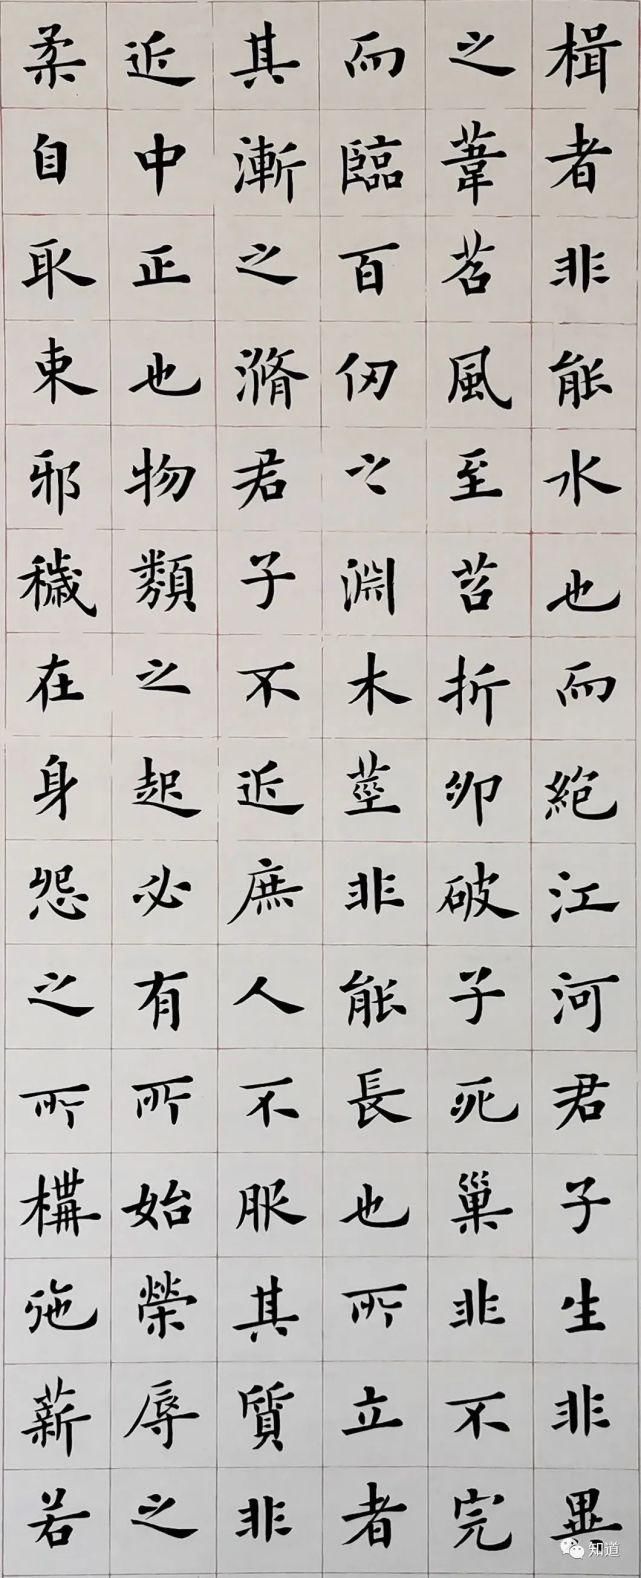 楫者非能水也而絶江河君子生非異
之葦苕風至苕折卵破子死巢非不完
而臨百仞之淵木莖非能長也所立者
其漸之滫君子不近庶人不服其質非
近中正也物類之起必有所始榮辱之
柔自取束邪穢在身怨之所構施薪若
知道